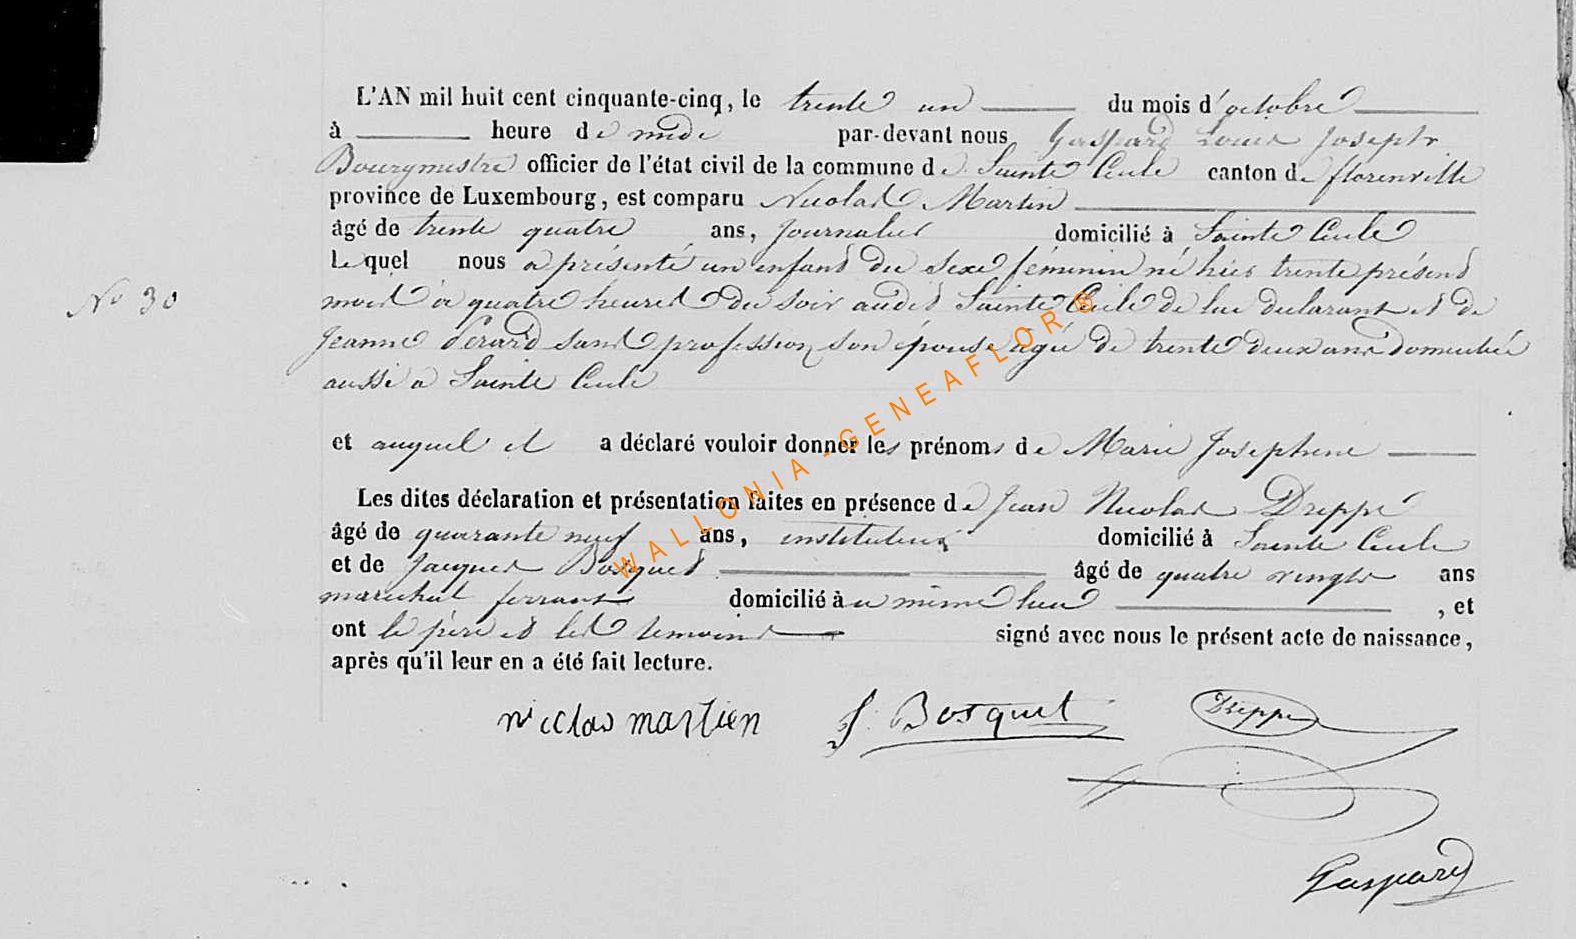 L'AN mil huit cent cinquante-cinq, le trente un du mois d'octobre
à heure de midi par-devant nous Gaspard Louis Joseph
Bourgmestre officier de l'état civil de la commune de Sainte Cecile canton de florenville
province de Luxembourg, est comparu Nicolas Martin
âgé de trente quatre ans, Journalier domicilié à Sainte Cecile
Lequel nous a présenté un enfant du sexe féminin né hier trente présent
N° 30
mois à quatre heures du soir audit Sainte Cecile de lui declarant et de
Jeanne Pérard sans profession son épouse agée de trente deux ans domiciliée
aussi a Sainte Cecile
et auquel il a déclaré vouloir donner les prénoms de Marie Josephine
Les dites déclaration et présentation faites en présence de Jean Nicolas Dreppe
âgé de quarante neuf ans, instituteur domicilié à Sainte Cecile
et de Jacques Bosquet âgé de quatre vingts ans
marechal ferrant domicilié à u même lieu , et
ont le père et les temoins signé avec nous le présent acte de naissance,
après qu'il leur en a été fait lecture.
nicclas martien J. Bosquet Dreppe
Gaspard
WALLONIA-GENEAFLOR®